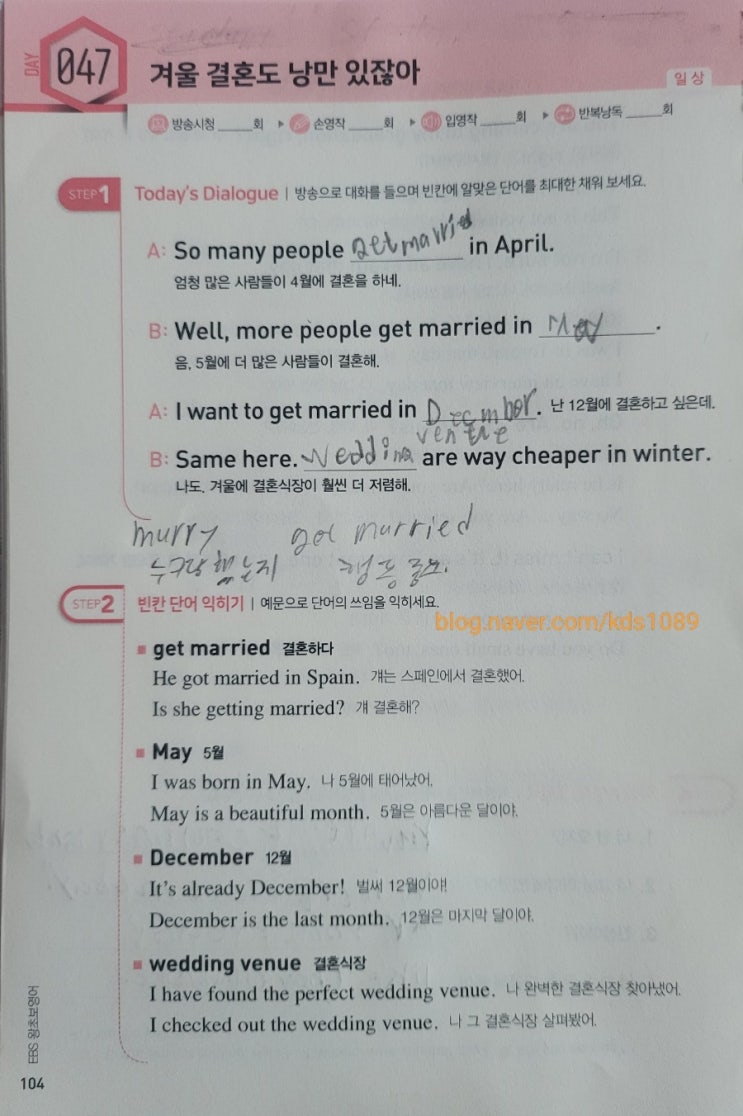 DAY 047 겨울 결혼도 낭만 있잖아
일상
방송시청 ____회 ▶ 손영작 ____회 ▶ 입영작 ____회 ▶ 반복낭독 ____회
STEP 1 Today's Dialogue | 방송으로 대화를 들으며 빈칸에 알맞은 단어를 최대한 채워 보세요.
A: So many people get married in April.
엄청 많은 사람들이 4월에 결혼을 하네.
B: Well, more people get married in May.
음, 5월에 더 많은 사람들이 결혼해.
A: I want to get married in Decmber. 난 12월에 결혼하고 싶은데.
ventue
B: Same here. Wedding are way cheaper in winter.
나도. 겨울에 결혼식장이 훨씬 더 저렴해.
murry got murried
누구랑 했는지 행동
STEP 2 빈칸 단어 익히기 | 예문으로 단어의 쓰임을 익히세요.
blog.naver.com/kds1089
get married 결혼하다
He got married in Spain. 걔는 스페인에서 결혼했어.
Is she getting married? 걔 결혼해?
May 5월
I was born in May. 나 5월에 태어났어.
May is a beautiful month. 5월은 아름다운 달이야.
December 12월
It's already December! 벌써 12월이야!
December is the last month. 12월은 마지막 달이야.
wedding venue 결혼식장
I have found the perfect wedding venue. 나 완벽한 결혼식장 찾아냈어.
I checked out the wedding venue. 나 그 결혼식장 살펴봤어.
EBS 왕초보영어
104